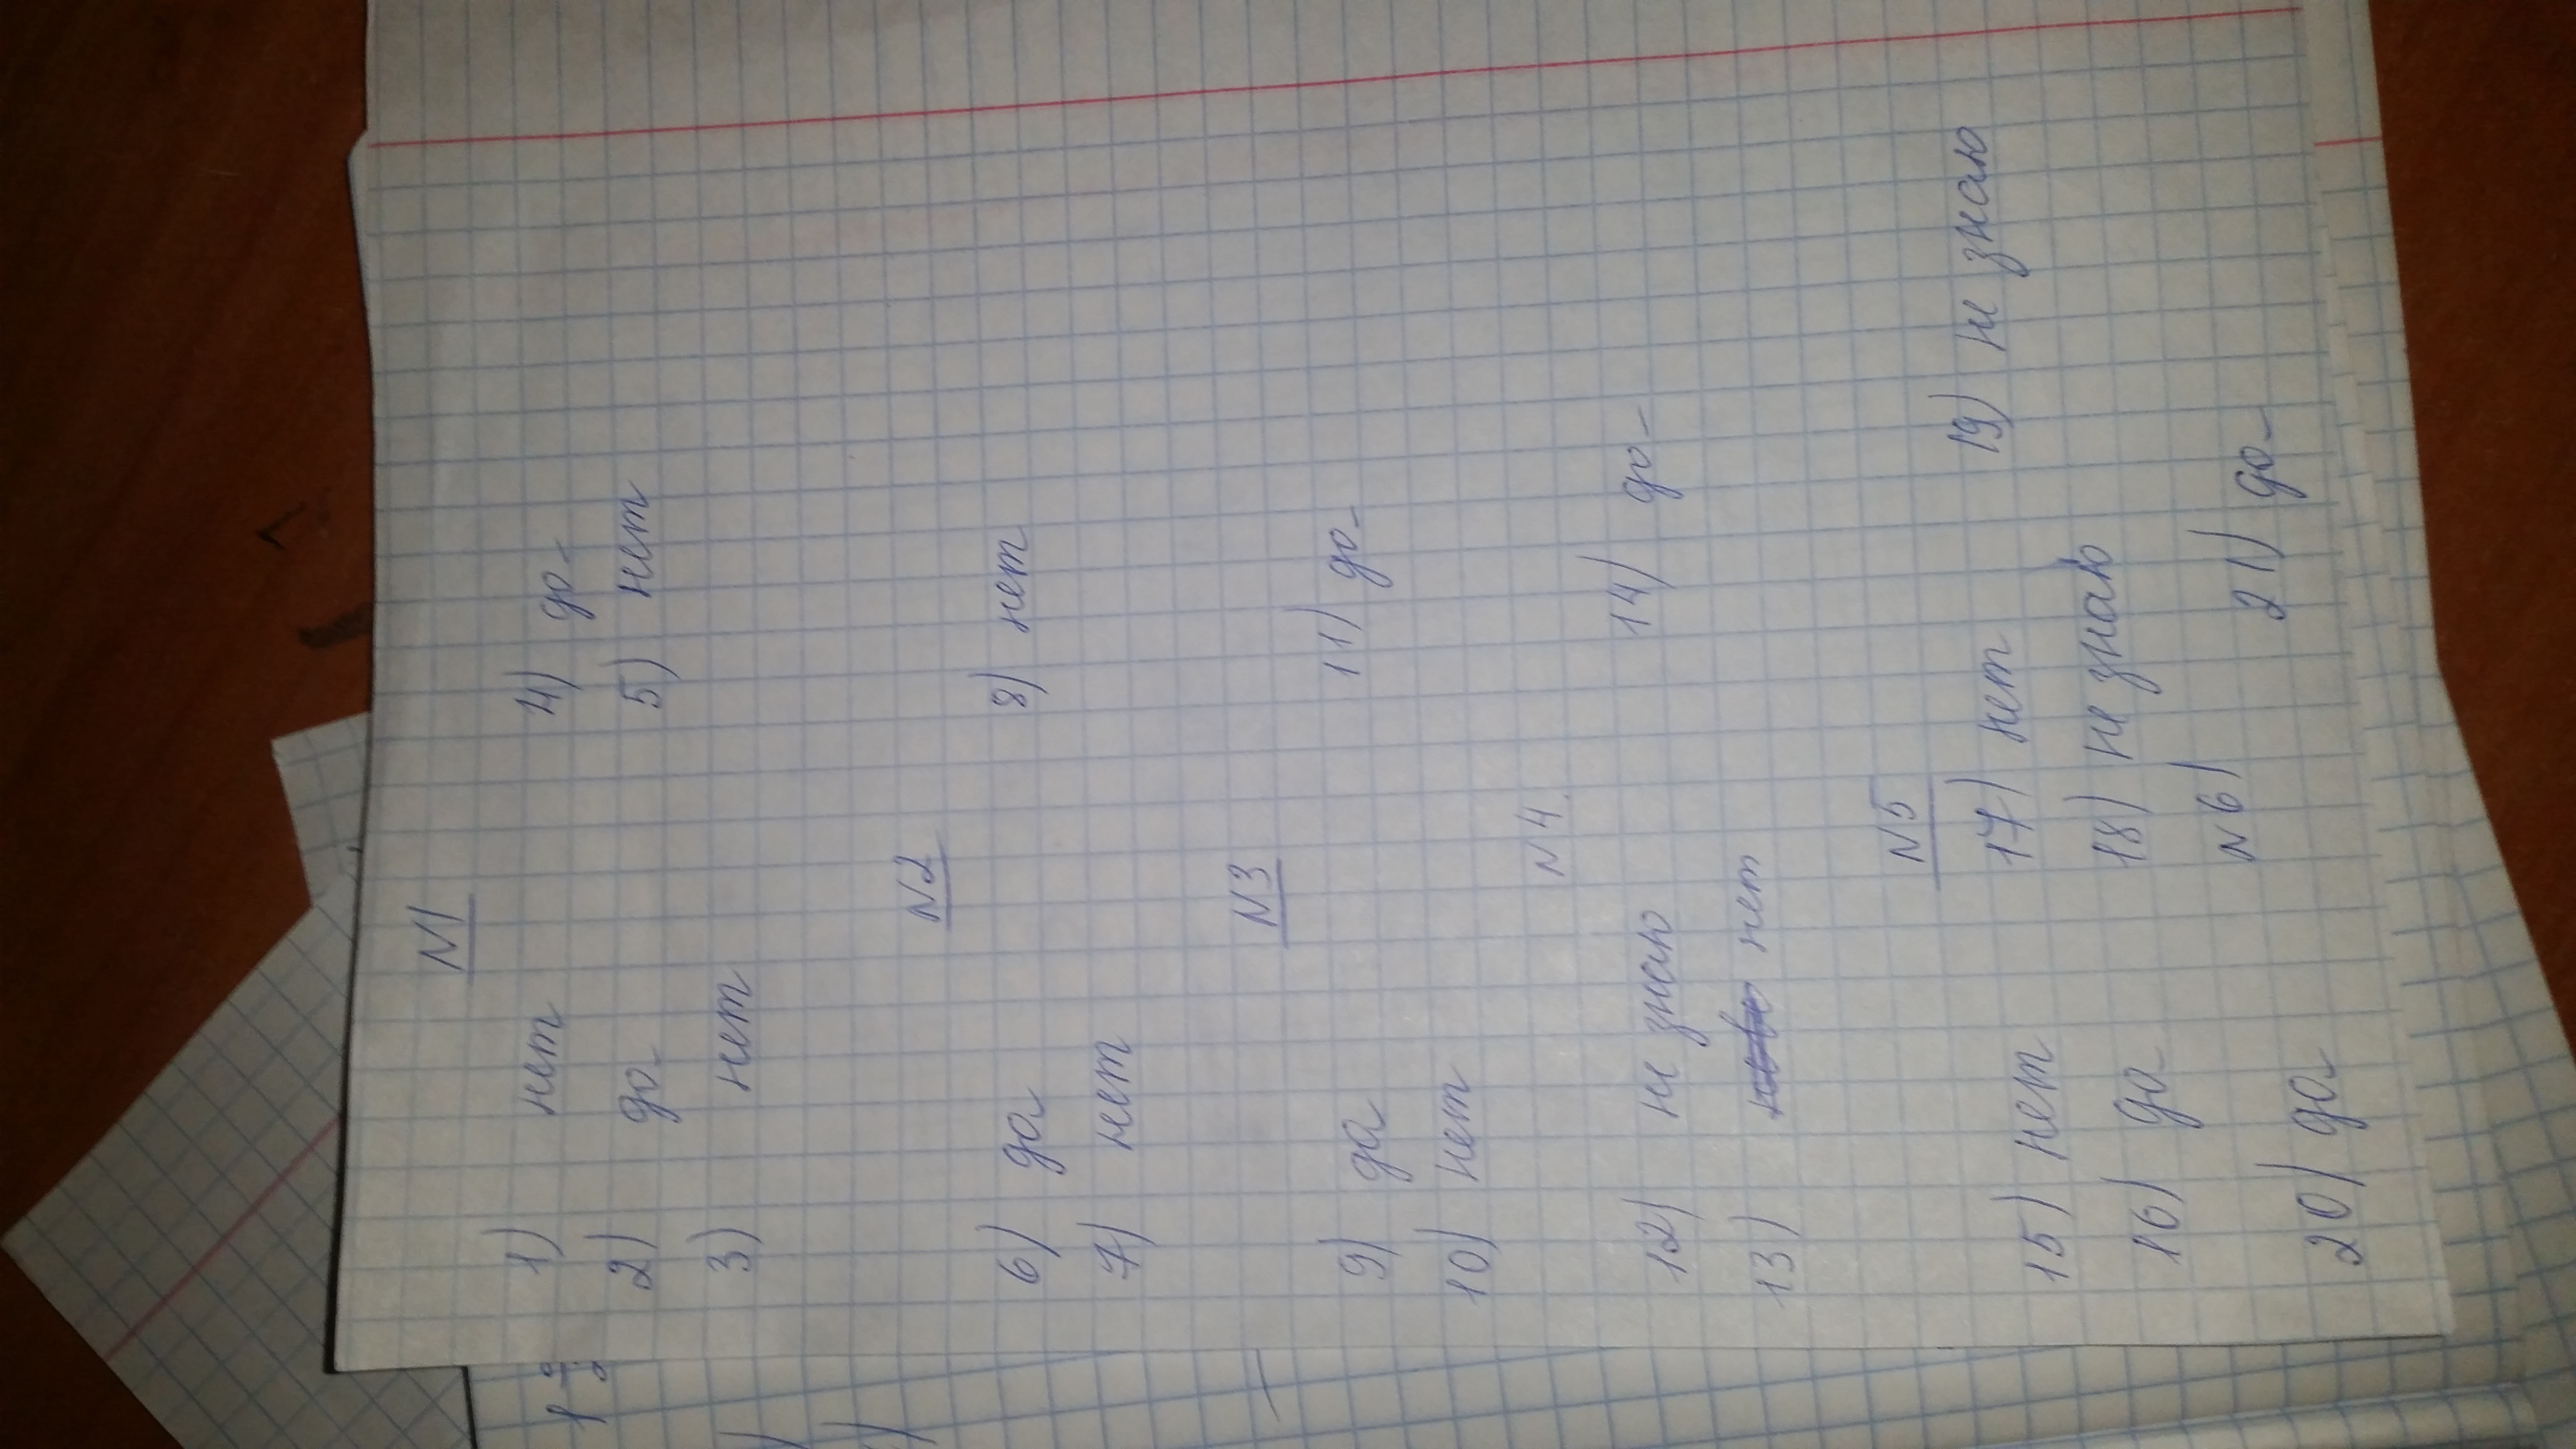 N1
1) нет 4) да
2) да 5) нет
3) нет
N2
6) да 8) нет
7) нет
N3
9) да 11) да
10) нет
N4
12) не знаю 14) да
13) нет
N5
15) нет 17) нет 19) не знаю
16) да 18) не знаю
N6
20) да 21) да